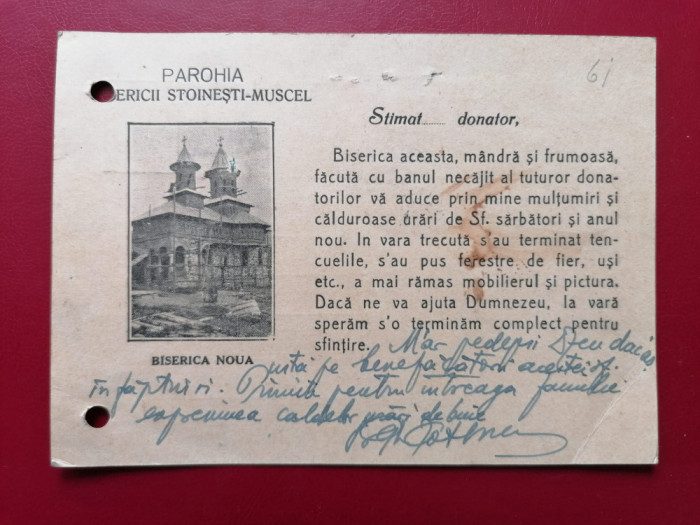 61
PAROHIA
ERICII STOINEȘTI-MUSCEL
BISERICA NOUA
Stimat........ donator,
Biserica aceasta, mândră și frumoasă,
făcută cu banul necăjit al tuturor dona-
torilor vă aduce prin mine mulțumiri și
călduroase urări de Sf. sărbători și anul
nou. In vara trecută s'au terminat ten-
cuelile, s'au pus ferestre de fier, uși
etc., a mai rămas mobilierul și pictura.
Dacă ne va ajuta Dumnezeu, la vară
sperăm s'o terminăm complect pentru
sfințire.
M'ar pedepsi D-zeu dacă
uita pe benefăcătorii acestei sf.
înfăptuiri. Primiți pentru întreaga familie
expresiunea caldelor urări de bine